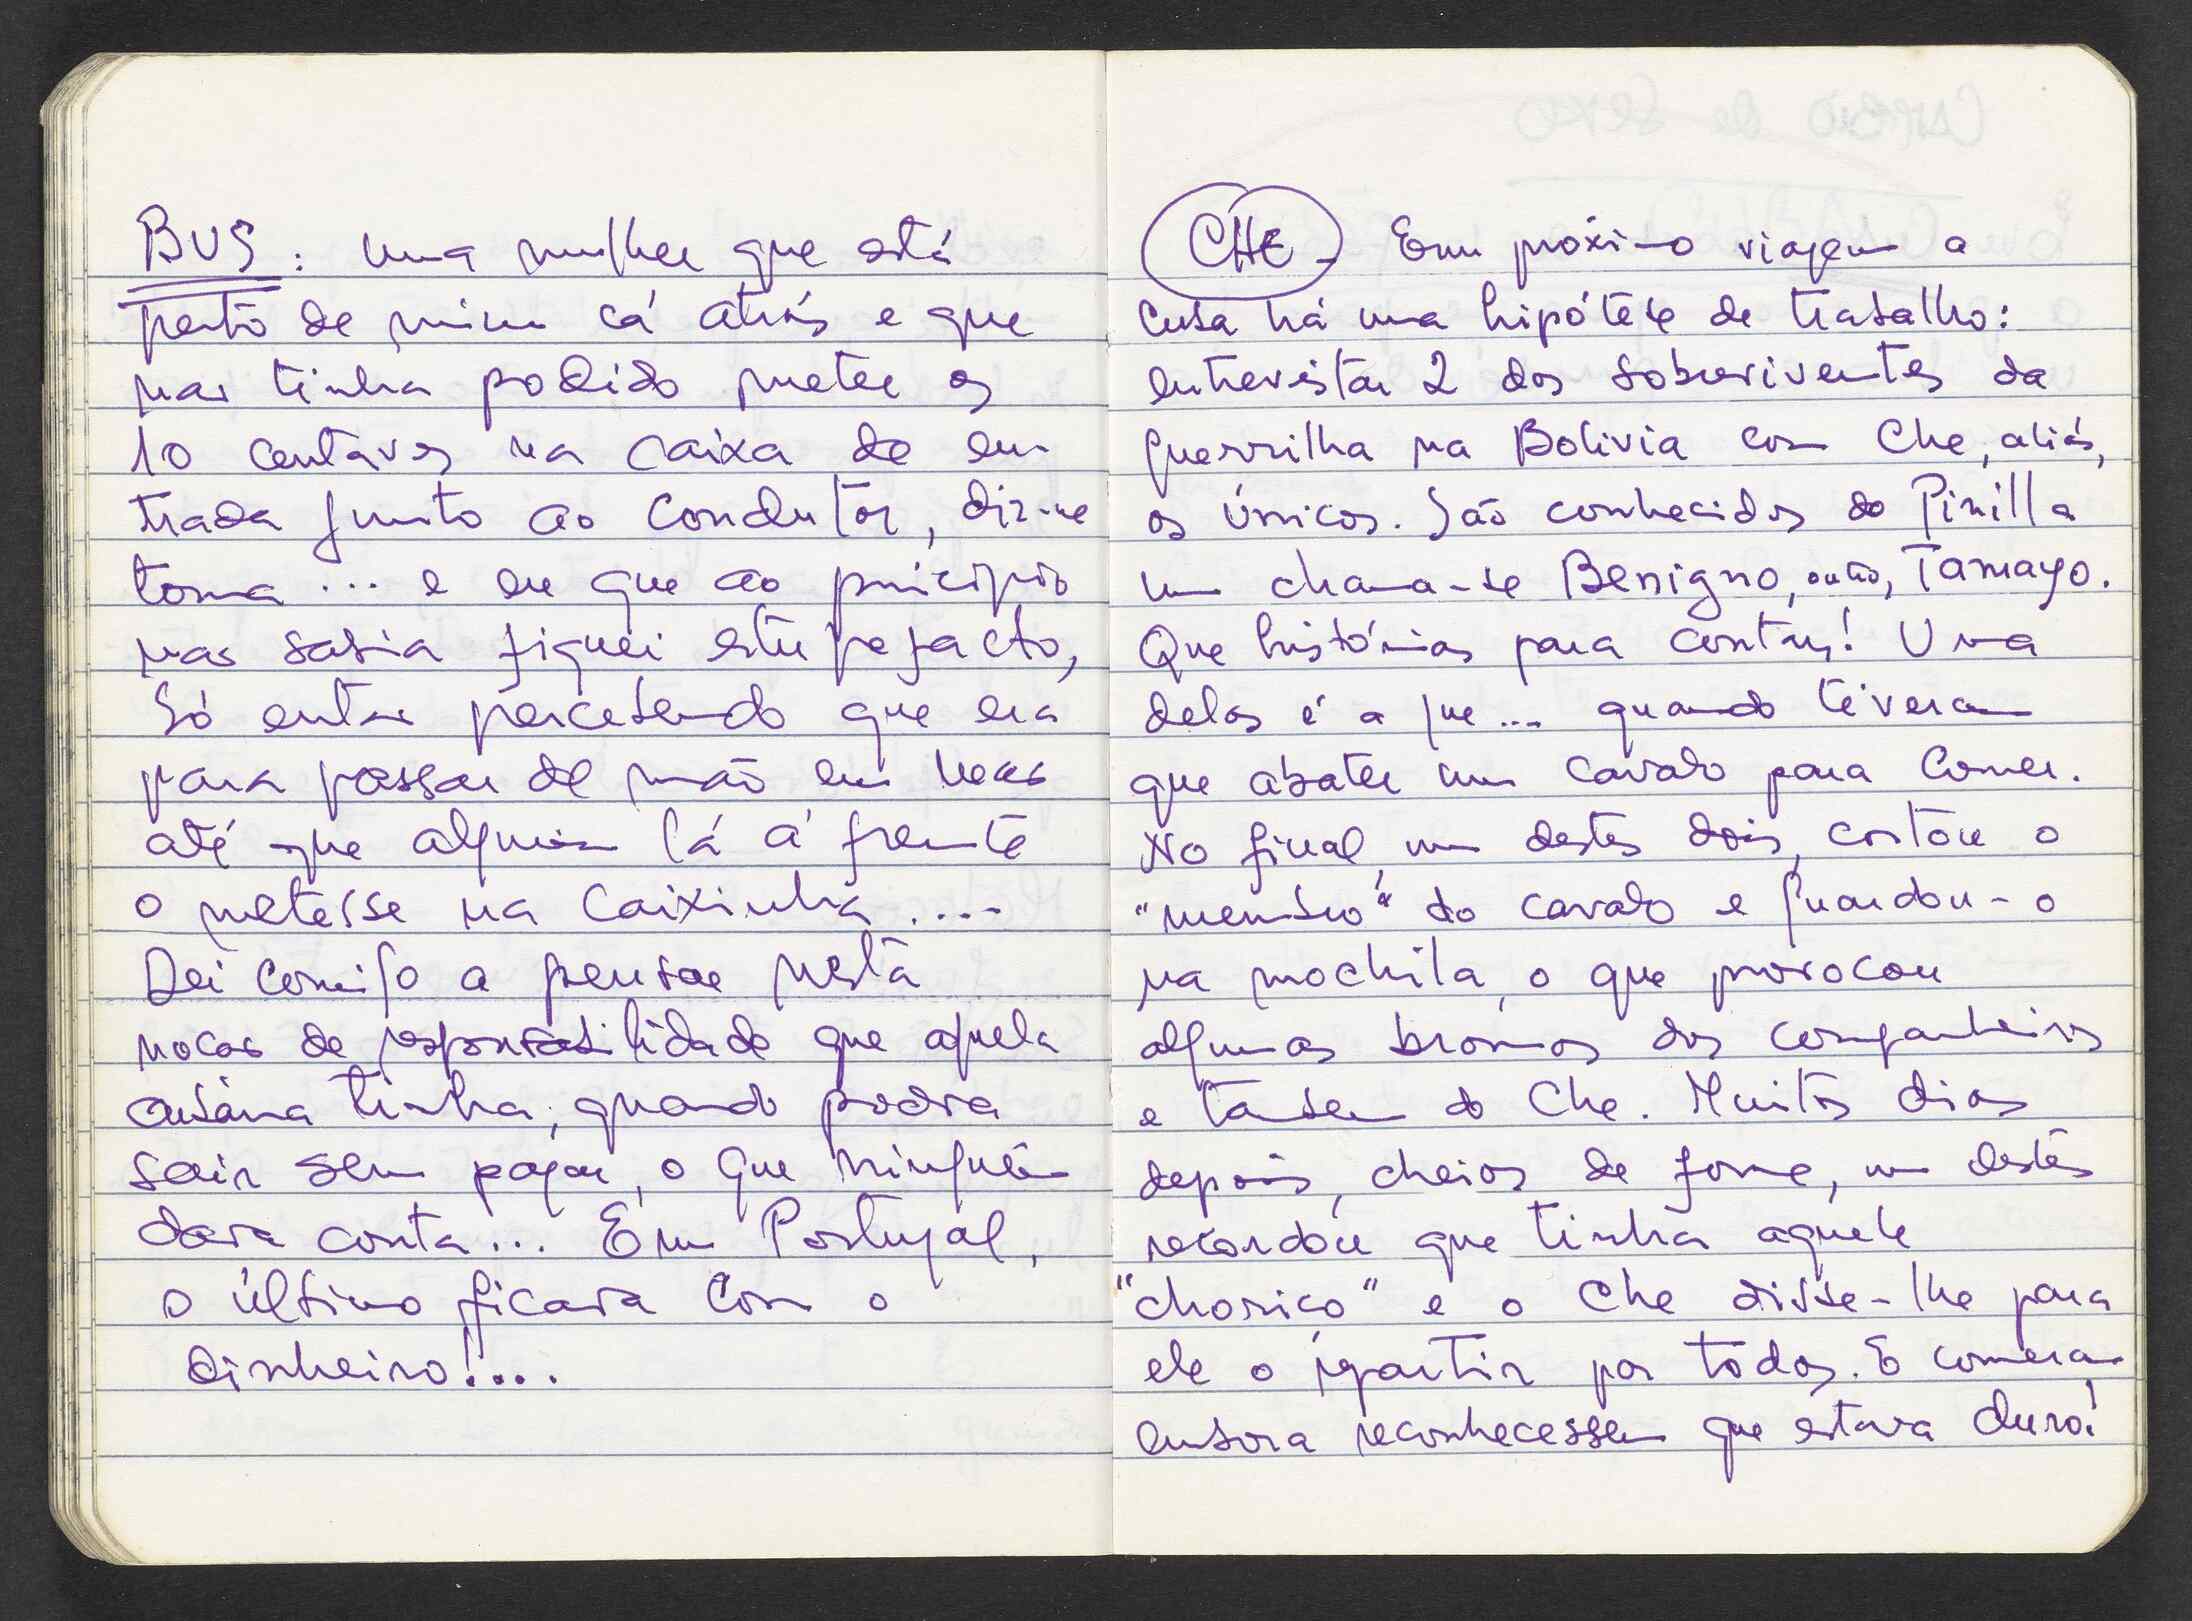 BUS: uma mulher que está
perto de mim cá atrás e que
não tinha podido meter os
10 centavos na caixa de en-
trada junto ao condutor, diz-me
toma... e eu que ao princípio
não sabia fiquei estupefacto,
Só então percebendo que era
para passar de mão em mão
até que alguém lá à frente
o metesse na caixinha....
Dei comigo a pensar nesta
noção de responsabilidade que aquela
cubana tinha, quando podia
sair sem pagar, o que ninguém
dava conta... Em Portugal,
o último ficava com o
dinheiro!...
CHE - Em próximo viagem a
Cuba há uma hipótese de trabalho:
entrevistar 2 dos sobreviventes da
guerrilha na Bolivia com Che, aliás,
os únicos. São conhecidos do Pinilla
um chama-se Benigno, outro, Tamayo.
Que histórias para contar! Uma
delas é a que... quando tiveram
que abater um cavalo para comer.
No final, um destes dois, cortou o
"membro" do cavalo e guardou-o
na mochila, o que provocou
algumas bromas dos companheiros
e também do Che. Muitos dias
depois, cheios de fome, um destes
recordou que tinha aquele
"chorico" e o Che disse-lhe para
ele o repartir por todos. E comeram
embora reconhecessem que estava duro!